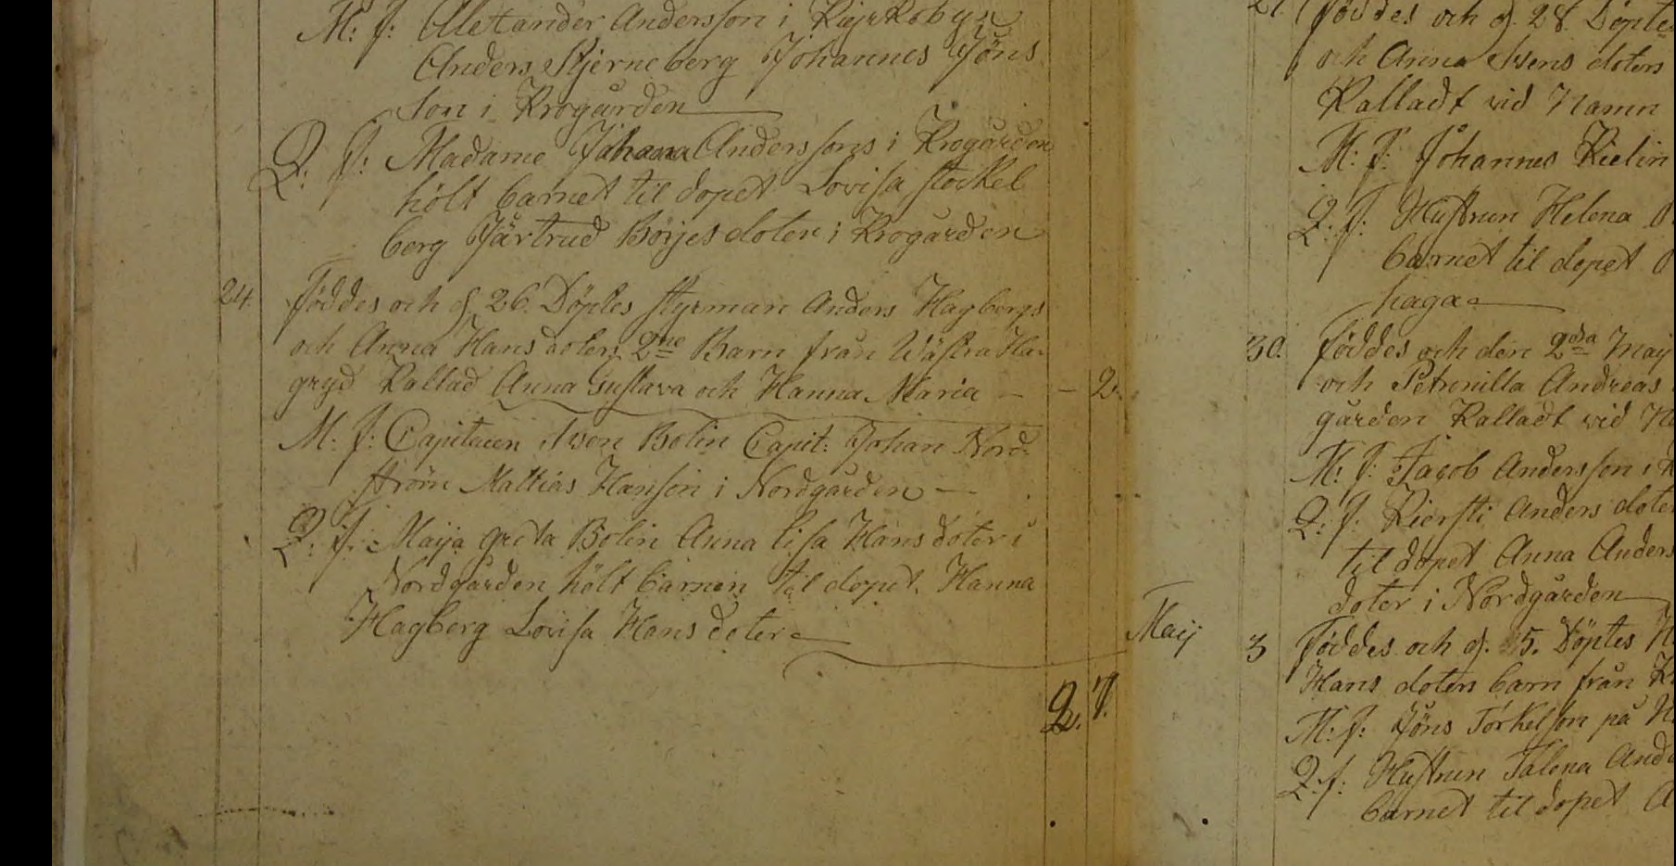 M: f: Alexander Andersson i Kyrkobyn
Anders Stjerneberg Johannes Jöns
son i Krogården
Q: f: Madame Johana Anderssons i Krogården
hölt barnet til dopet Lovisa Stockel
berg Järtrud Börjesdoter i Krogården
24. föddes och d. 26. Döptes Styrman Anders Hagbergs
och Anna Hans doters 2ne Barn från Wästra Ha-
gryd Kallad Anna Gustava och Hanna Maria — – 2.
M: f: Capitaien Swen Bolin Capit: Johan Nord-
ström Mattias Hanson i Nordgården —
Q: f: Maija Greta Bolin Anna Lisa Hans doter i
Nordgården hölt barnen til dopet. Hanna
Hagberg Lovisa Hans doter
2. 7.
föddes och d. 28 Döptes
och Anna Svens doters
Kalladt vid Namn
M: f: Johannes Kielin
Q: f: Hustrun Helena
barnet til dopet
haga
30. föddes och den 2dra Maij
och Petronilla Andreas
gården Kalladt vid
M: f: Jacob Andersson i
Q: f: Kiersti Anders doter
til dopet Anna Anders
doter i Nordgården
Maij 3 föddes och d. 5. Döptes
Hans doters barn från
M: f: Jöns Torkelson på
Q: f: Hustrun Talena
barnet til dopet